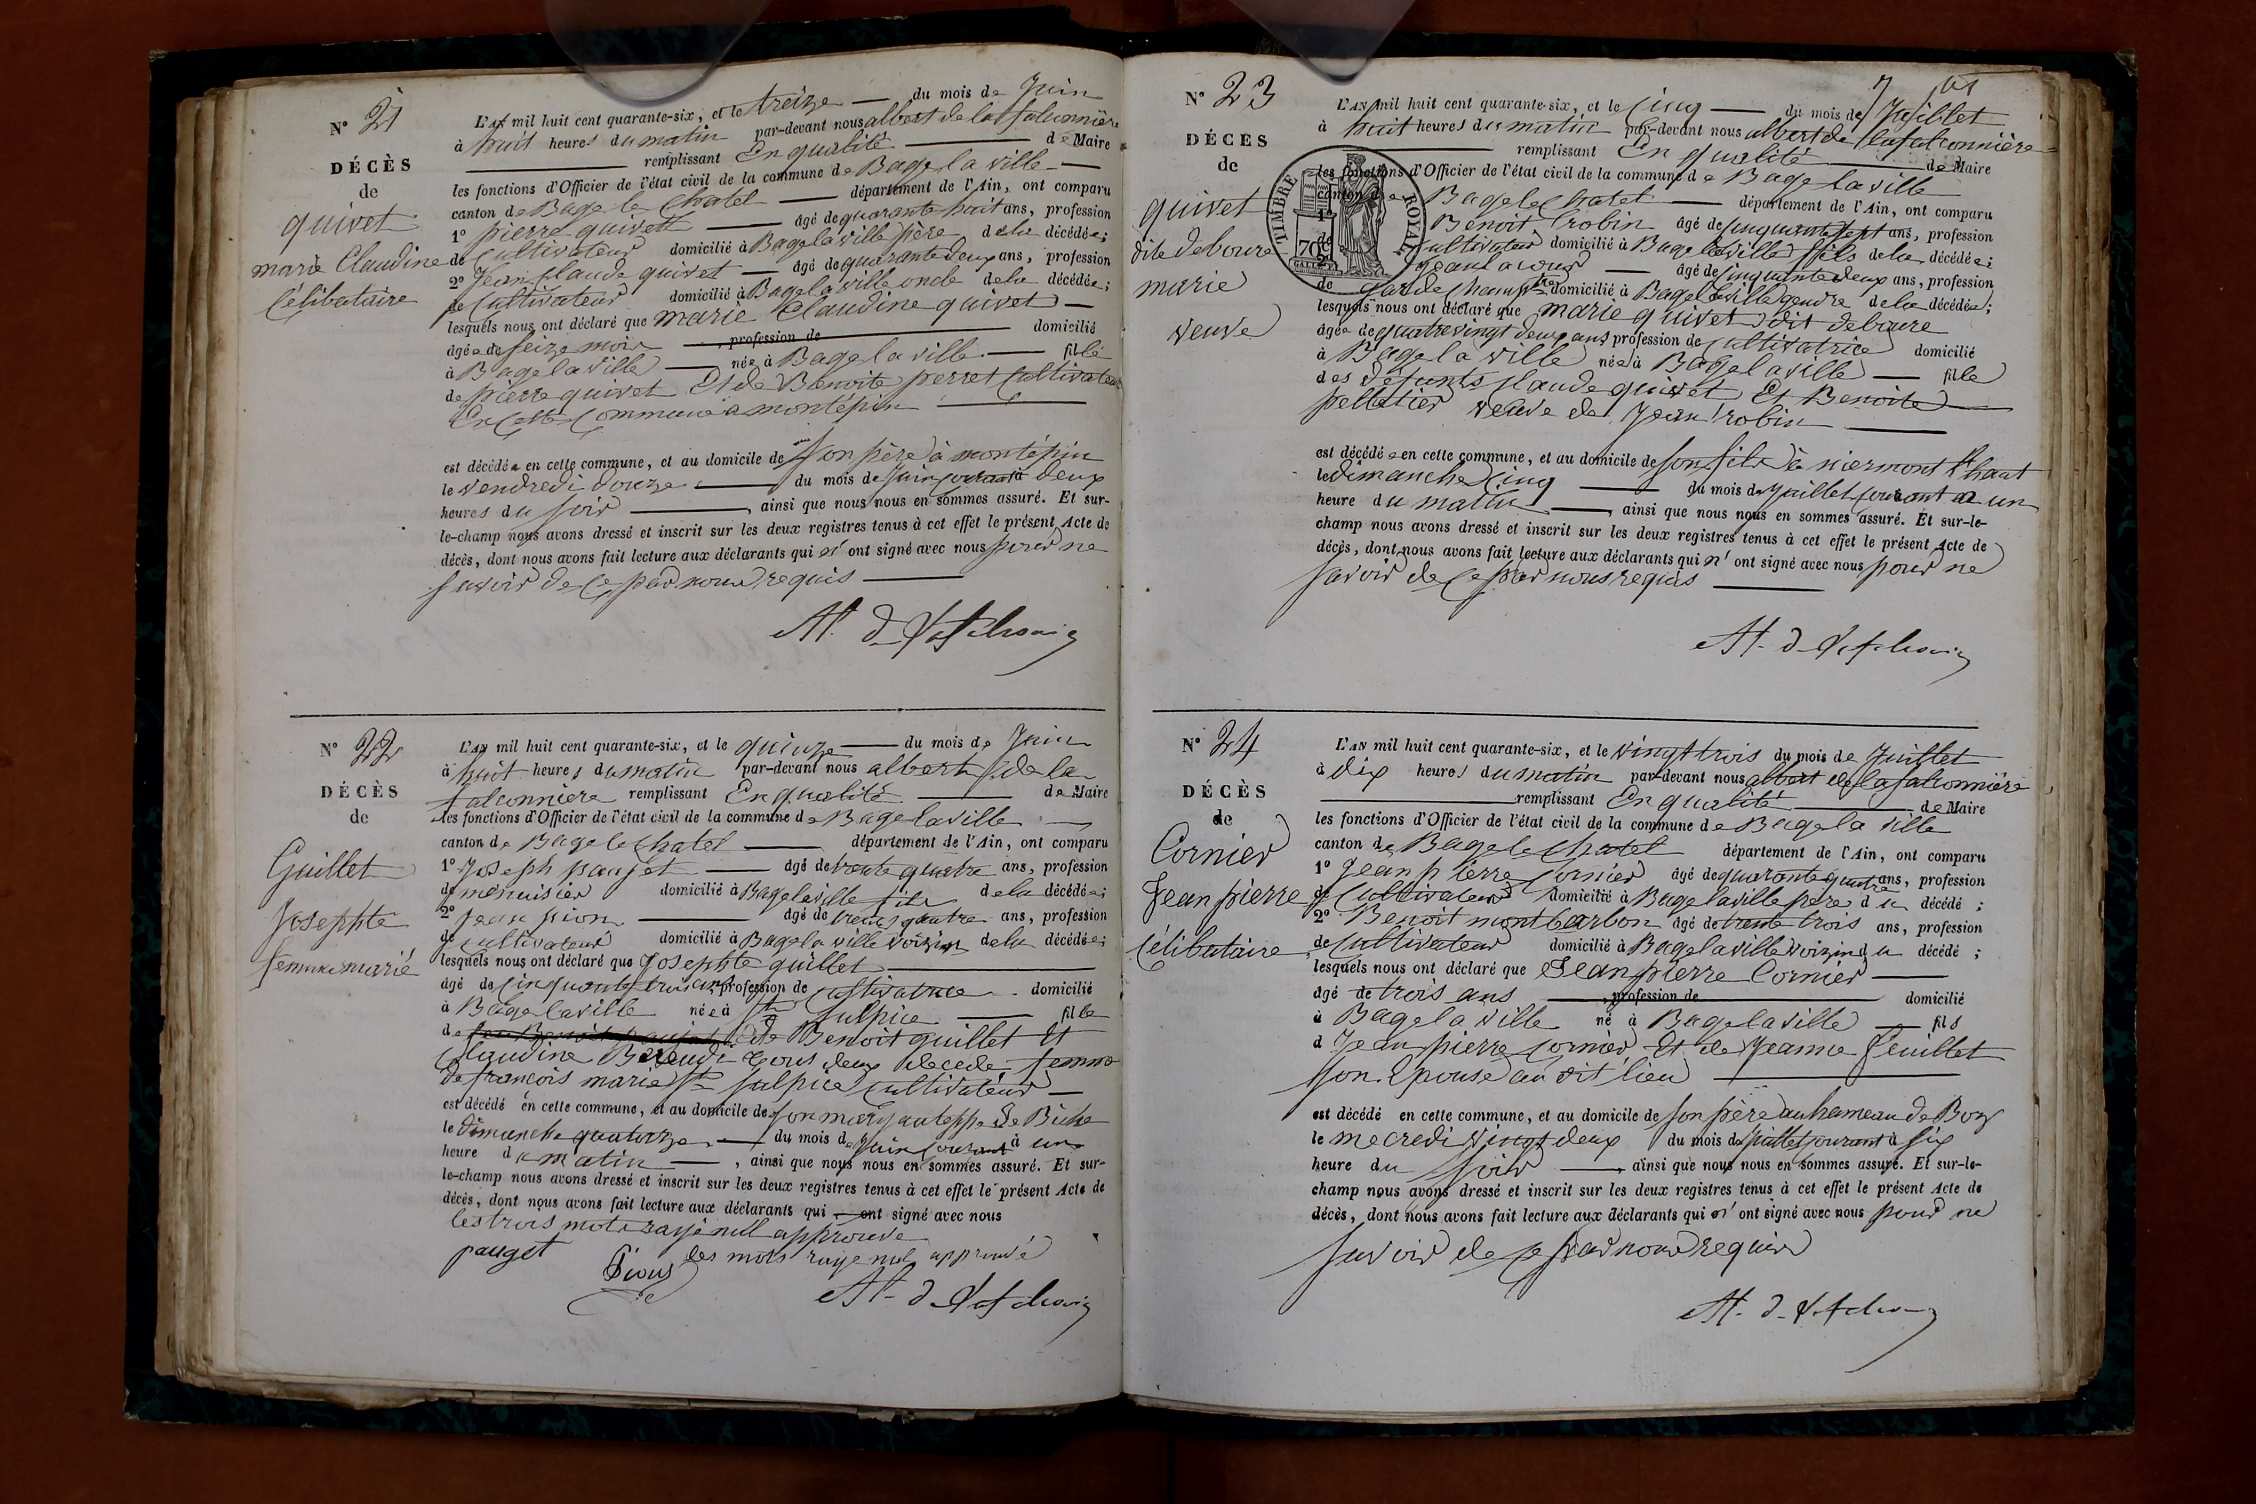 N° 21
DÉCÈS
de
quivet
marie Claudine
Célibataire
L'AN mil huit cent quarante-six, et le treize du mois de Juin
à huit heures du matin par-devant nous albert de la falconnière
remplissant En qualité de Maire
les fonctions d'Officier de l'état civil de la commune de Bage la ville
canton de Bage le Chatel département de l'Ain, ont comparu
1° pierre quivet âgé de quarante huit ans, profession
de Cultivateur domicilié à Bage la ville père de la décédée;
2° Jean Claude quivet âgé de quarante deux ans, profession
de Cultivateur domicilié à Bage la ville oncle de la décédée;
lesquels nous ont déclaré que marie Claudine quivet
âgée de seize mois profession de domicilié
à Bage la ville née à Bage la ville fille
de pierre quivet Et de Benoite perret Cultivateur
En cette Commune a montépin
est décédée en cette commune, et au domicile de son père à montépin
le vendredi douze du mois de Juin courant à deux
heures du soir, ainsi que nous nous en sommes assuré. Et sur-
le-champ nous avons dressé et inscrit sur les deux registres tenus à cet effet le présent Acte de
décès, dont nous avons fait lecture aux déclarants qui n'ont signé avec nous pour ne
savoir de ce par nous requis
N° 22
DÉCÈS
de
Guillet
Josephte
femme marié
L'AN mil huit cent quarante-six, et le quinze du mois de Juin
à huit heures du matin par-devant nous albert de la
falconniere remplissant En qualité de Maire
les fonctions d'Officier de l'état civil de la commune de Bage la ville
canton de Bage le Chatel département de l'Ain, ont comparu
1° Joseph pauget âgé de trente quatre ans, profession
de menuisier domicilié à Bage la ville fils de la décédée;
2° Jean pion âgé de trente quatre ans, profession
de cultivateur domicilié à Bage la ville voizin de la décédée;
lesquels nous ont déclaré que Josephte guillet
âgé de Cinquante trois ans profession de cultivatrice domicilié
à Bage la ville née à St Sulpice fille
de de Benoit guillet Et
Claudine tous deux décédé femme
de francois marie St Sulpice Cultivateur
est décédé en cette commune, et au domicile de son mary
le dimanche quatorze du mois de Juin courant à une
heure du matin, ainsi que nous nous en sommes assuré. Et sur-
le-champ nous avons dressé et inscrit sur les deux registres tenus à cet effet le présent Acte de
décès, dont nous avons fait lecture aux déclarants qui ont signé avec nous
les trois mots rayé nul approuve
pauget les mots raye nul approuvé
Pion
N° 23
DÉCES
de
quivet
dite deboure
marie
veuve
TIMBRE ROYAL
70c
L'AN mil huit cent quarante-six, et le Cinq du mois de Juillet
à huit heures du matin par-devant nous albert de la falconnière
remplissant En qualité de Maire
les fonctions d'Officier de l'état civil de la commune de Bage la ville
canton de Bage le Chatel département de l'Ain, ont comparu
1° Benoit robin âgé de cinquante sept ans, profession
de Cultivateur domicilié à Bage la ville fils de la décédée;
2° Jean âgé de cinquante deux ans, profession
de garde Champtre domicilié à Bage la ville gendre de la décédée;
lesquels nous ont déclaré que marie quivet dit deboure
âgée de quatre vingt deux ans profession de Cultivatrice domicilié
à Bage la ville née à Bage la ville fille
des défunts Claude quivet Et Benoite
pelletier veuve de Jean robin
est décédée en cette commune, et au domicile de son fils à niermont
le dimanche Cinq du mois de Juillet courant a un
heure du matin, ainsi que nous nous en sommes assuré. Et sur-le-
champ nous avons dressé et inscrit sur les deux registres tenus à cet effet le présent Acte de
décès, dont nous avons fait lecture aux déclarants qui n'ont signé avec nous pour ne
savoir de ce par nous requis
N° 24
DÉCÈS
de
Cornier
Jean pierre
Célibataire
L'AN mil huit cent quarante-six, et le vingt trois du mois de Juillet
à dix heures du matin par-devant nous albert de la falconnière
remplissant En qualité de Maire
les fonctions d'Officier de l'état civil de la commune de Bage la ville
canton de Bage le Chatel département de l'Ain, ont comparu
1° Jean pierre Cornier âgé de quarante quatre ans, profession
de Cultivateur domicilié à Bage la ville père du décédé;
2° Benoit montbarbon âgé de trente trois ans, profession
de Cultivateur domicilié à Bage la ville voizin du décédé;
lesquels nous ont déclaré que Jean pierre Cornier
âgé de trois ans profession de domicilié
à Bage la ville né à Bage la ville fils
d Jean pierre Cornier Et de Jeanne feuillet
son Epouse au dit lieu
est décédé en cette commune, et au domicile de son père au hameau de Boz
le mecredi vingt deux du mois de Juillet courant à six
heure du soir, ainsi que nous nous en sommes assuré. Et sur-le-
champ nous avons dressé et inscrit sur les deux registres tenus à cet effet le présent Acte de
décès, dont nous avons fait lecture aux déclarants qui n'ont signé avec nous pour ne
savoir de ce par nous requis